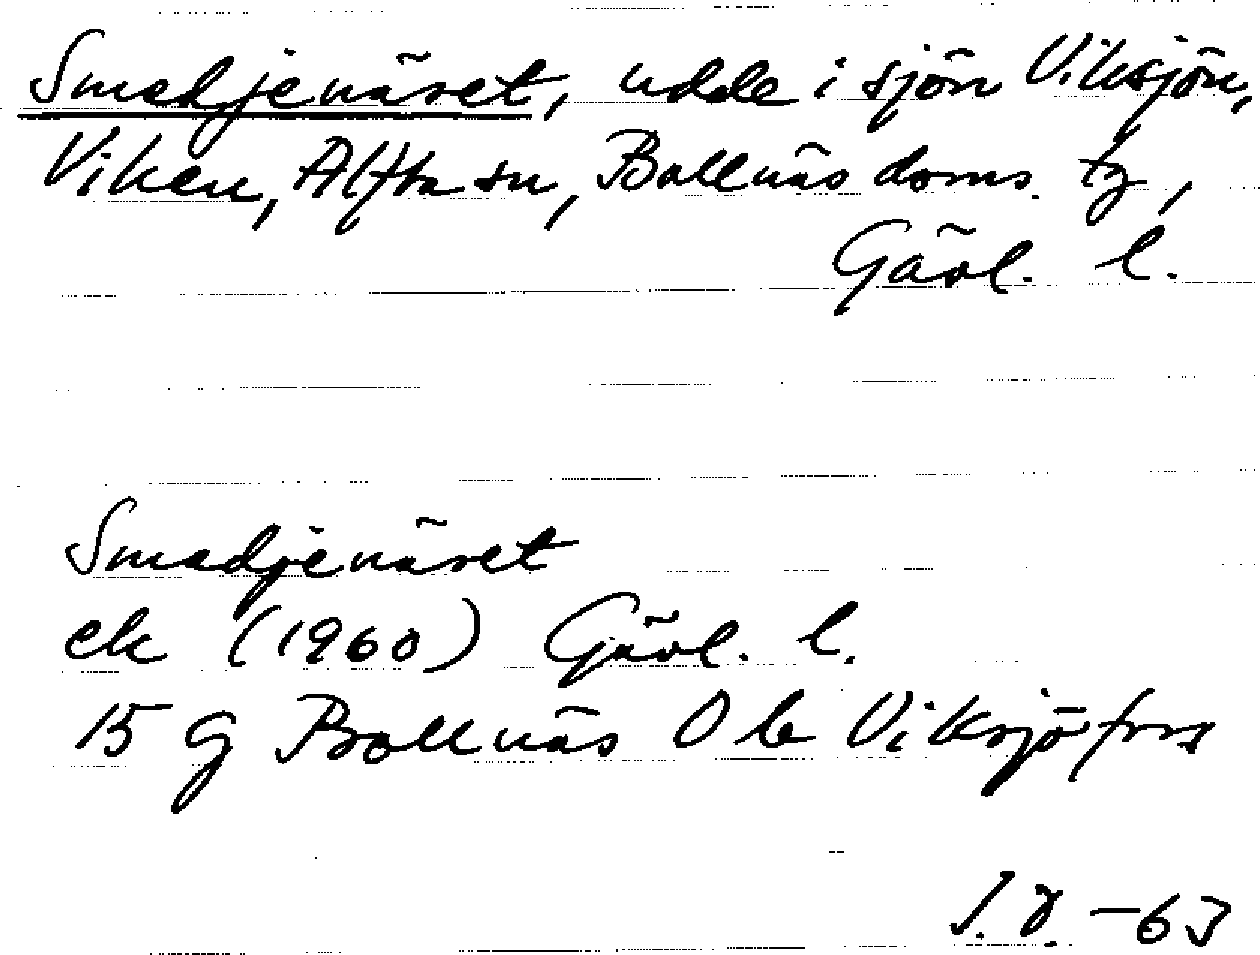 Smedjenäset, udde i sjön Viksjön,
Viken, Alfta sn, Bollnäs doms. tg,
Gävl. l.
Smedjenäset
ek (1960) Gävl. l.
15 G Bollnäs O b Viksjöfors
-63